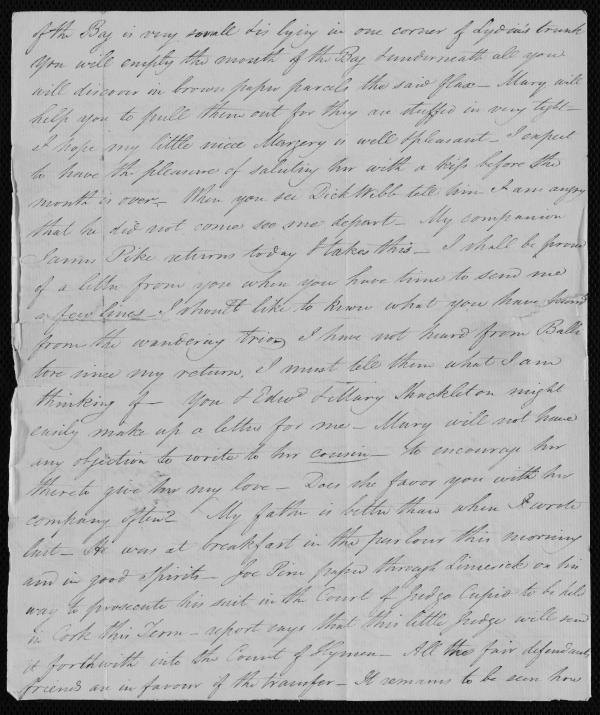 of the Bag is very small & is lying in one corner of Lydia's trunk
You will empty the mouth of the Bag & underneath all you
will discover in brown paper parcels the said flax - Mary will
help you to pull them out for they are stuffed in very tight -
I hope my little niece Margery is well & pleasant - I expect
to have the pleasure of saluting her with a kiss before the
month is over - When you see Dick Webb tell him I am angry
that he did not come see me depart - My companion
James Pike returns today & takes this - I shall be proud
of a letter from you when you have time to send me
a few lines - I should like to know what you have found
from the wandering trio, I have not heard from Balli
tore since my return, I must tell them what I am
thinking of - You & Edwd & Mary Shackleton might
easily make up a letter for me - Mary will not have
any objection to write to her cousin - to encourage her
thereto give her my love - Does she favor you with her
company often? My father is better than when I wrote
last - He was at breakfast in the parlour this morning
and in good spirits - Joe Pim passed through Limerick on his
way to prosecute his suit in the Court of Judge Cupid to be held
in Cork this Term - report says that this little Judge will send
it forthwith into the Court of Hymen - All the fair defendants
friends are in favour of the transfer - It remains to be seen how